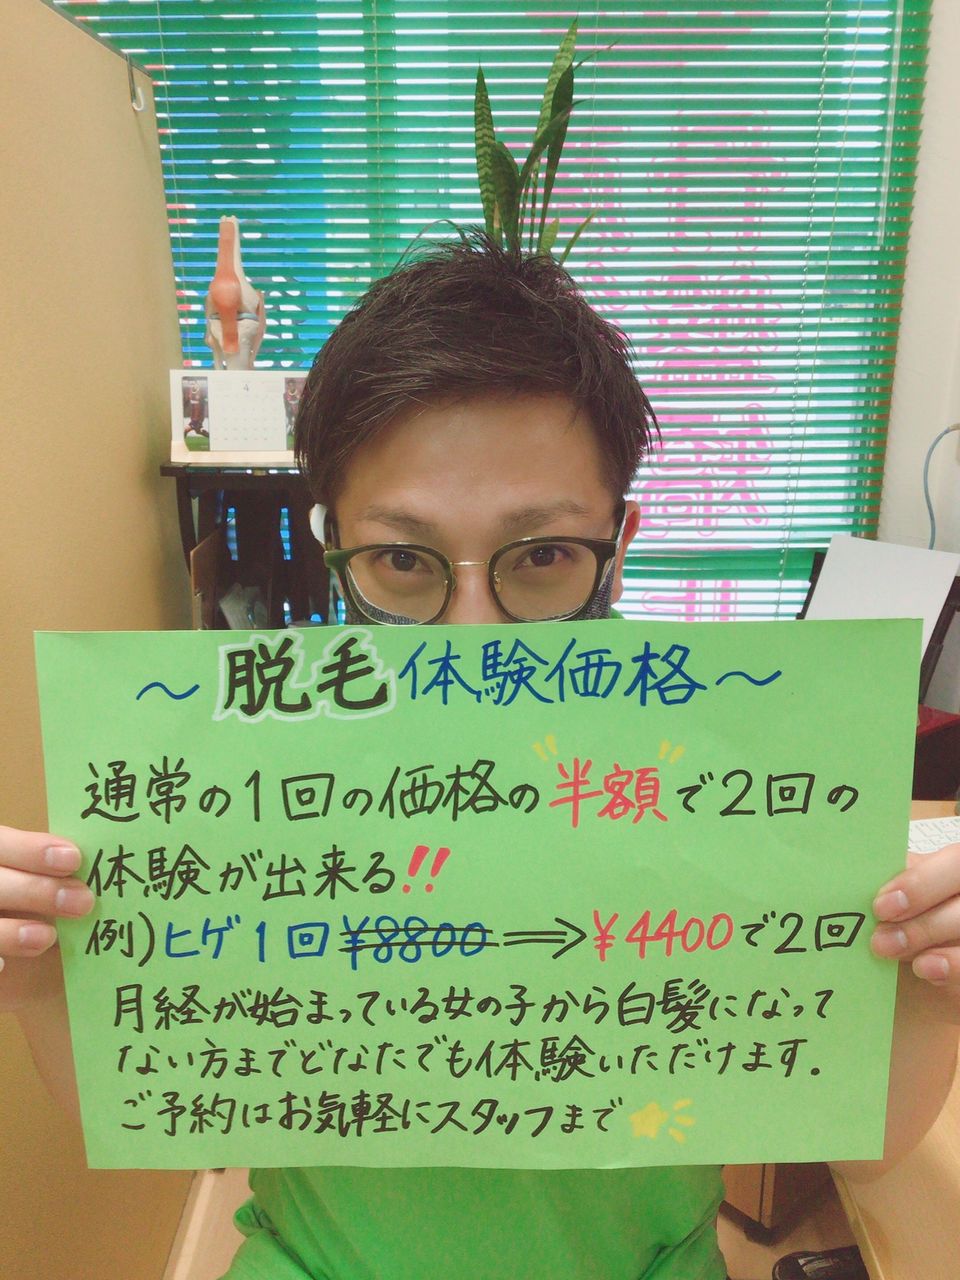 ～脱毛体験価格～
通常の1回の価格の"半額"で2回の
体験が出来る!!
例)ヒゲ1回 ¥8800 ⇒ ¥4400で2回
月経が始まっている女の子から白髪になって
ない方までどなたでも体験いただけます.
ご予約はお気軽にスタッフまで
4